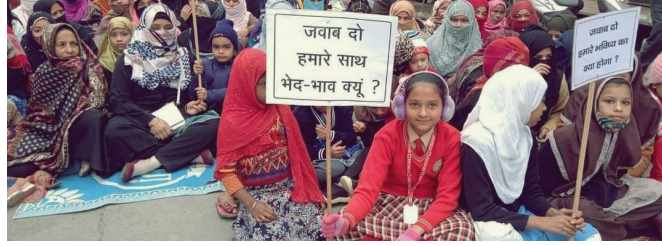 जवाब दो
हमारे साथ
भेद-भाव क्यूं ?
जवाब दो
हमारे भविष्य का
क्या होगा ?